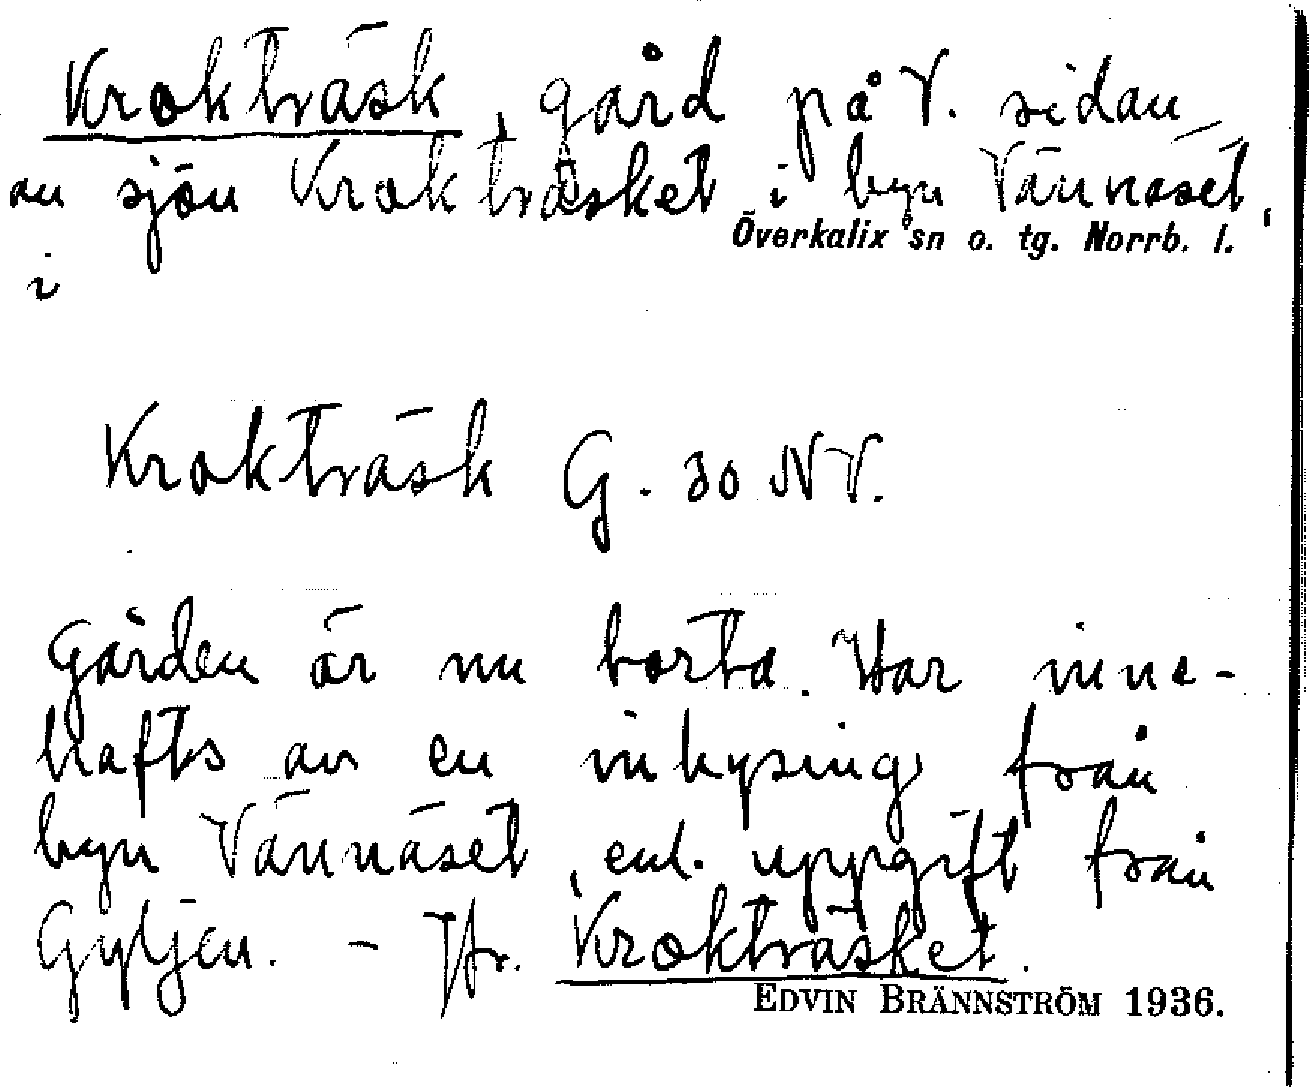 Krokträsk, gård på V. sidan
av sjön Krokträsket i byn Vännäset,
Överkalix sn o. tg. Norrb. l.
i
Krokträsk G. 30 NV.
Gården är nu borta. Har inne-
hafts av en inhysing från
byn Vännäset, enl. uppgift från
Gyljen. – Jfr. Krokträsket.
EDVIN BRÄNNSTRÖM 1936.